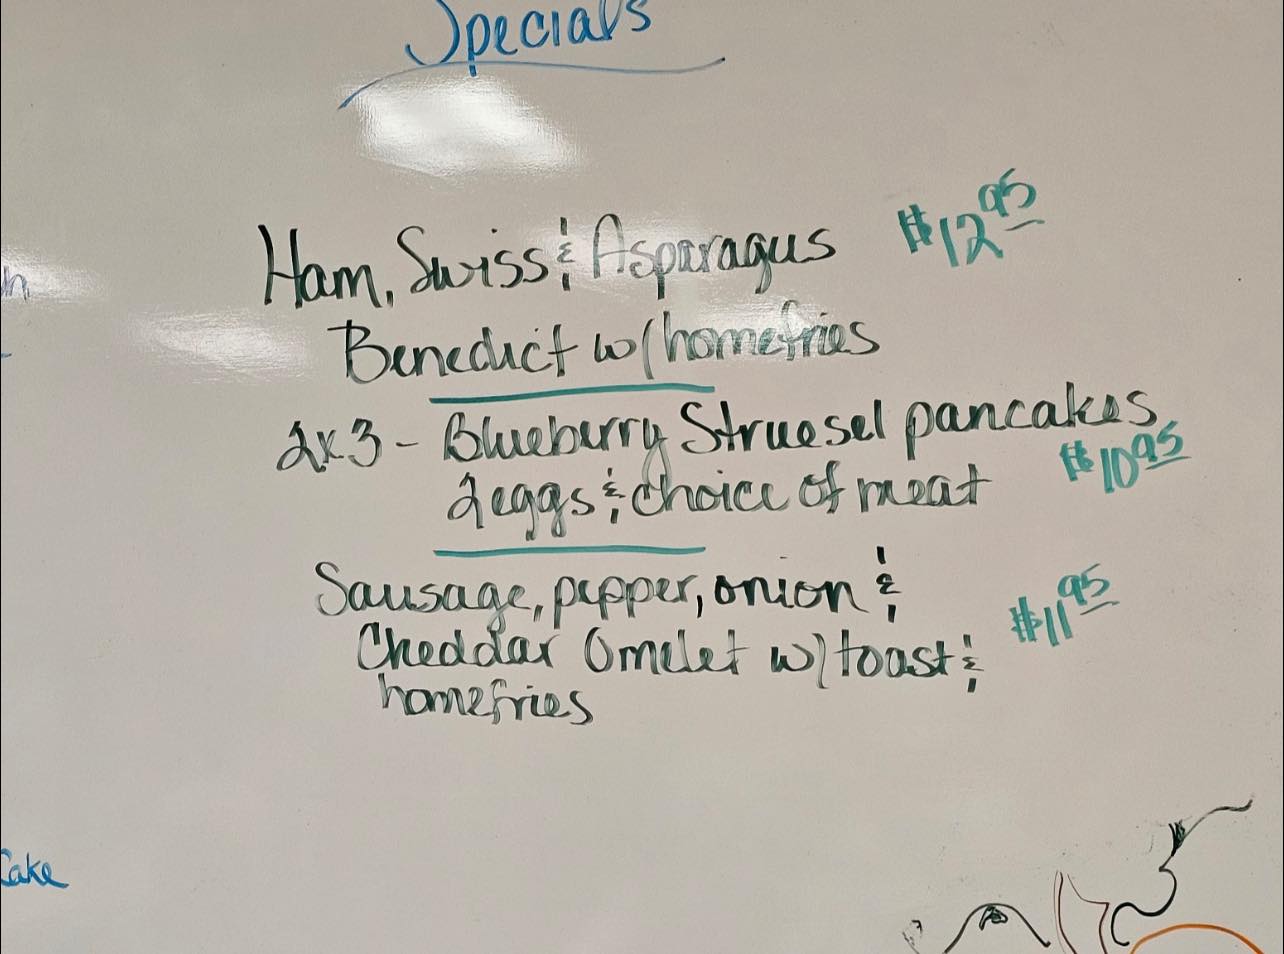 Specials
Ham, Swiss & Asparagus $12.95
Benedict w/homefries
2x3 - Blueberry Struesel pancakes
2eggs & choice of meat $10.95
Sausage, pepper, onion &
Cheddar Omelet w/toast & $11.95
homefries
Cake